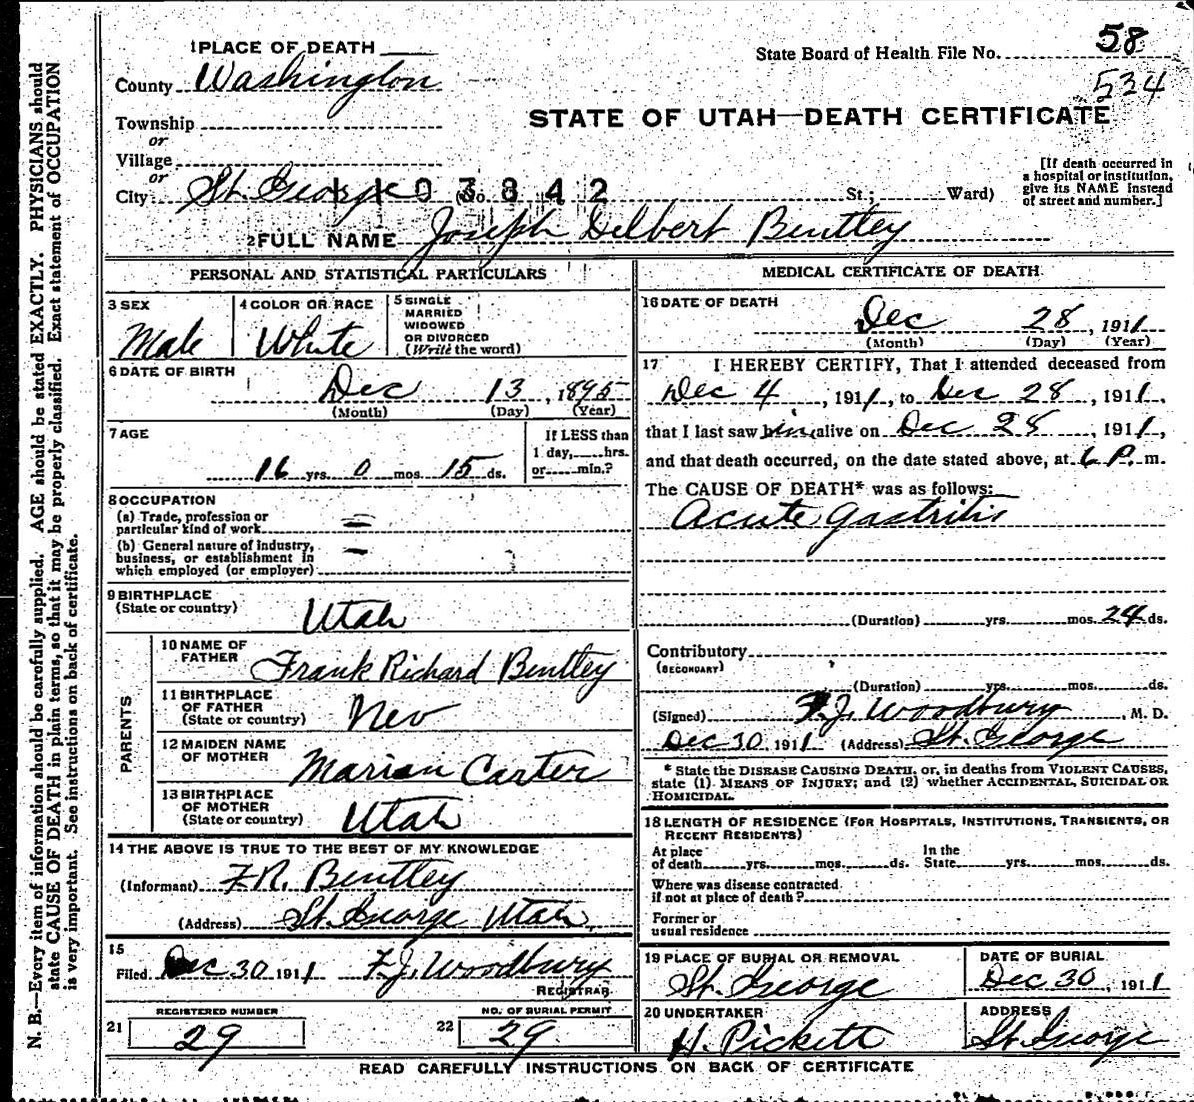 1 PLACE OF DEATH
State Board of Health File No. 58
534
County Washington
STATE OF UTAH—DEATH CERTIFICATE
Township
or
Village
or
City St. George (No. St.; Ward)
1103842
[If death occurred in
a hospital or institution,
give its NAME instead
of street and number.]
2 FULL NAME Joseph Delbert Bentley
PERSONAL AND STATISTICAL PARTICULARS
3 SEX
Male
4 COLOR OR RACE
White
5 SINGLE
MARRIED
WIDOWED
OR DIVORCED
(Write the word)
6 DATE OF BIRTH
Dec 13, 1895
(Month) (Day) (Year)
7 AGE
16 yrs. 0 mos. 15 ds.
If LESS than
1 day,.....hrs.
or.....min.?
8 OCCUPATION
(a) Trade, profession or
particular kind of work
(b) General nature of industry,
business, or establishment in
which employed (or employer)
9 BIRTHPLACE
(State or country)
Utah
PARENTS
10 NAME OF
FATHER
Frank Richard Bentley
11 BIRTHPLACE
OF FATHER
(State or country)
Nev
12 MAIDEN NAME
OF MOTHER
Marian Carter
13 BIRTHPLACE
OF MOTHER
(State or country)
Utah
14 THE ABOVE IS TRUE TO THE BEST OF MY KNOWLEDGE
(Informant) F R. Bentley
(Address) St. George Utah
15
Filed Dec 30 1911 F. J. Woodbury
REGISTRAR
REGISTERED NUMBER
21 29
NO. OF BURIAL PERMIT
22 29
MEDICAL CERTIFICATE OF DEATH
16 DATE OF DEATH
Dec 28, 1911
(Month) (Day) (Year)
17 I HEREBY CERTIFY, That I attended deceased from
Dec 4, 1911, to Dec 28, 1911,
that I last saw him alive on Dec 28, 1911,
and that death occurred, on the date stated above, at 6 P. m.
The CAUSE OF DEATH* was as follows:
Acute gastritis
(Duration) yrs. mos. 24 ds.
Contributory
(SECONDARY)
(Duration) yrs. mos. ds.
(Signed) F. J. Woodbury, M. D.
Dec 30 1911 (Address) St. George
* State the DISEASE CAUSING DEATH, or, in deaths from VIOLENT CAUSES,
state (1) MEANS OF INJURY; and (2) whether ACCIDENTAL, SUICIDAL OR
HOMICIDAL.
18 LENGTH OF RESIDENCE (FOR HOSPITALS, INSTITUTIONS, TRANSIENTS, OR
RECENT RESIDENTS)
At place
of death yrs. mos. ds. In the
State yrs. mos. ds.
Where was disease contracted
if not at place of death?
Former or
usual residence
19 PLACE OF BURIAL OR REMOVAL
St. George
DATE OF BURIAL
Dec 30, 1911
20 UNDERTAKER
H. Pickett
ADDRESS
St George
READ CAREFULLY INSTRUCTIONS ON BACK OF CERTIFICATE
N. B.—Every item of information should be carefully supplied. AGE should be stated EXACTLY. PHYSICIANS should
state CAUSE OF DEATH in plain terms, so that it may be properly classified. Exact statement of OCCUPATION
is very important. See instructions on back of certificate.